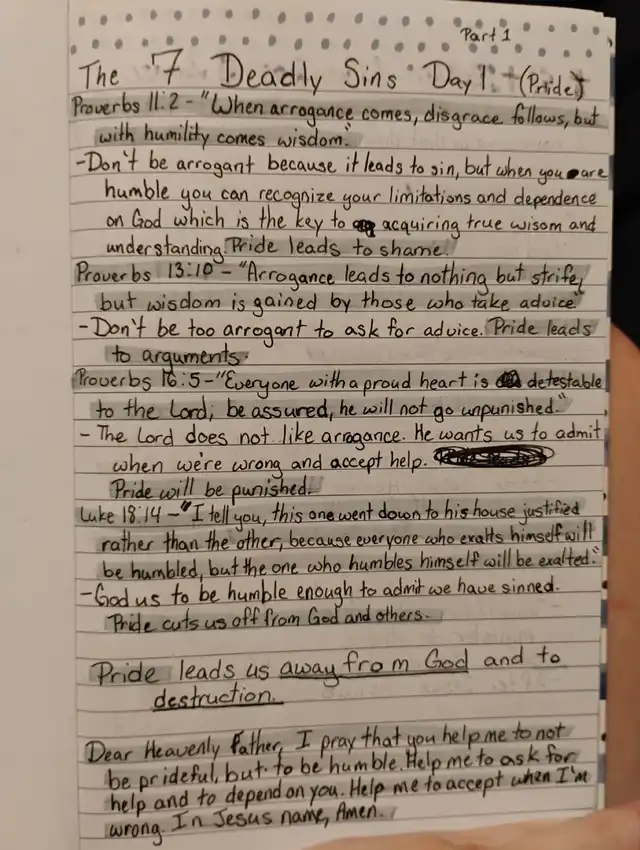 Part 1
The 7 Deadly Sins Day 1 - (Pride)
Proverbs 11:2 - "When arrogance comes, disgrace follows, but
with humility comes wisdom."
- Don't be arrogant because it leads to sin, but when you are
humble you can recognize your limitations and dependence
on God which is the key to acquiring true wisom and
understanding. Pride leads to shame.
Proverbs 13:10 - "Arrogance leads to nothing but strife,
but wisdom is gained by those who take advice"
- Don't be too arrogant to ask for advice. Pride leads
to arguments.
Proverbs 16:5 - "Everyone with a proud heart is detestable
to the Lord; be assured, he will not go unpunished."
- The Lord does not like arrogance. He wants us to admit
when we're wrong and accept help.
Pride will be punished.
Luke 18:14 - "I tell you, this one went down to his house justified
rather than the other, because everyone who exalts himself will
be humbled, but the one who humbles himself will be exalted."
- God us to be humble enough to admit we have sinned.
Pride cuts us off from God and others.
Pride leads us away from God and to
destruction.
Dear Heavenly Father, I pray that you help me to not
be prideful, but to be humble. Help me to ask for
help and to depend on you. Help me to accept when I'm
wrong. In Jesus name, Amen.